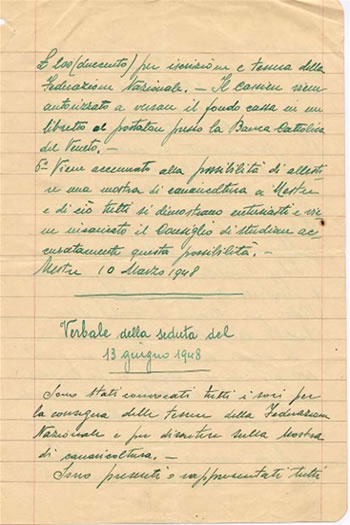 £ 200 (duecento) per iscrizione e tessera della
Federazione Nazionale. — Il Cassiere viene
autorizzato a versare il fondo cassa in un
libretto al portatore presso la Banca Cattolica
del Veneto. —
6° Viene accennato alla possibilità di allesti-
re una mostra di canaricoltura a Mestre
e di ciò tutti si dimostrano entusiasti e vie-
ne incaricato il Consiglio di studiare ac-
curatamente questa possibilità. —
Mestre 10 Marzo 1948
Verbale della seduta del
13 giugno 1948
Sono stati convocati tutti i soci per
la consegna delle tessere della Federazione
Nazionale e per discutere sulla Mostra
di canaricoltura. —
Sono presenti o rappresentati tutti